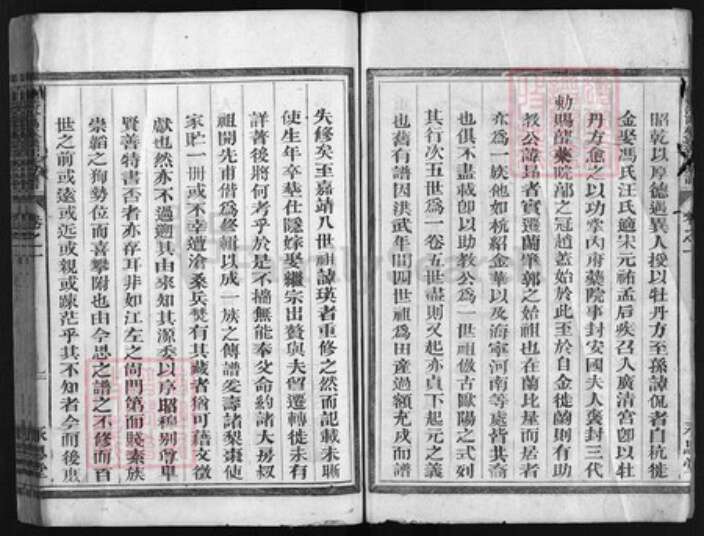 昭乾以厚德遇異人授以牡丹方至孫諱侃者自杭徙
金娶馮氏汪氏適宋元祐孟后疾召入廣清宮卽以牡
丹方愈之以功掌內府藥院事封安國夫人褒封三代
勅賜龍藥院郎之冠趙蓋始於此至於自金徙蘭則有助
教公諱昌者實遷蘭皐郭之始祖也在蘭比屋而居者
亦爲一族他如杭紹金華以及海寧河南等處皆其裔
也俱不盡載卽以助教公爲一世祖倣古歐陽之式列
其行次五世爲一卷五世盡則又起亦貞下起元之義
也舊有譜因洪武年間四世祖爲田產過額充戍而譜
失修矣至嘉靖八世祖諱瑛者重修之然而記載未晰
使生年卒葬仕隱嫁娶繼宗出贅與夫畱遷轉徙未有
詳著後將何考乎於是不揣無能奉父命約諸大房叔
祖開先甫偕爲修輯以成一族之傳譜爰壽諸梨棗使
家貯一冊或不幸遭滄桑兵燹有其藏者猶可藉文徵
獻也然亦不過遡其由來知其源委以序昭穆別尊卑
賢善特書否者亦存耳非如江左之尙門第而賤素族
崇韜之狥勢位而喜攀附也由今思之譜之不修而自
世之前或遠或近或親或疎茫乎其不知者今而後